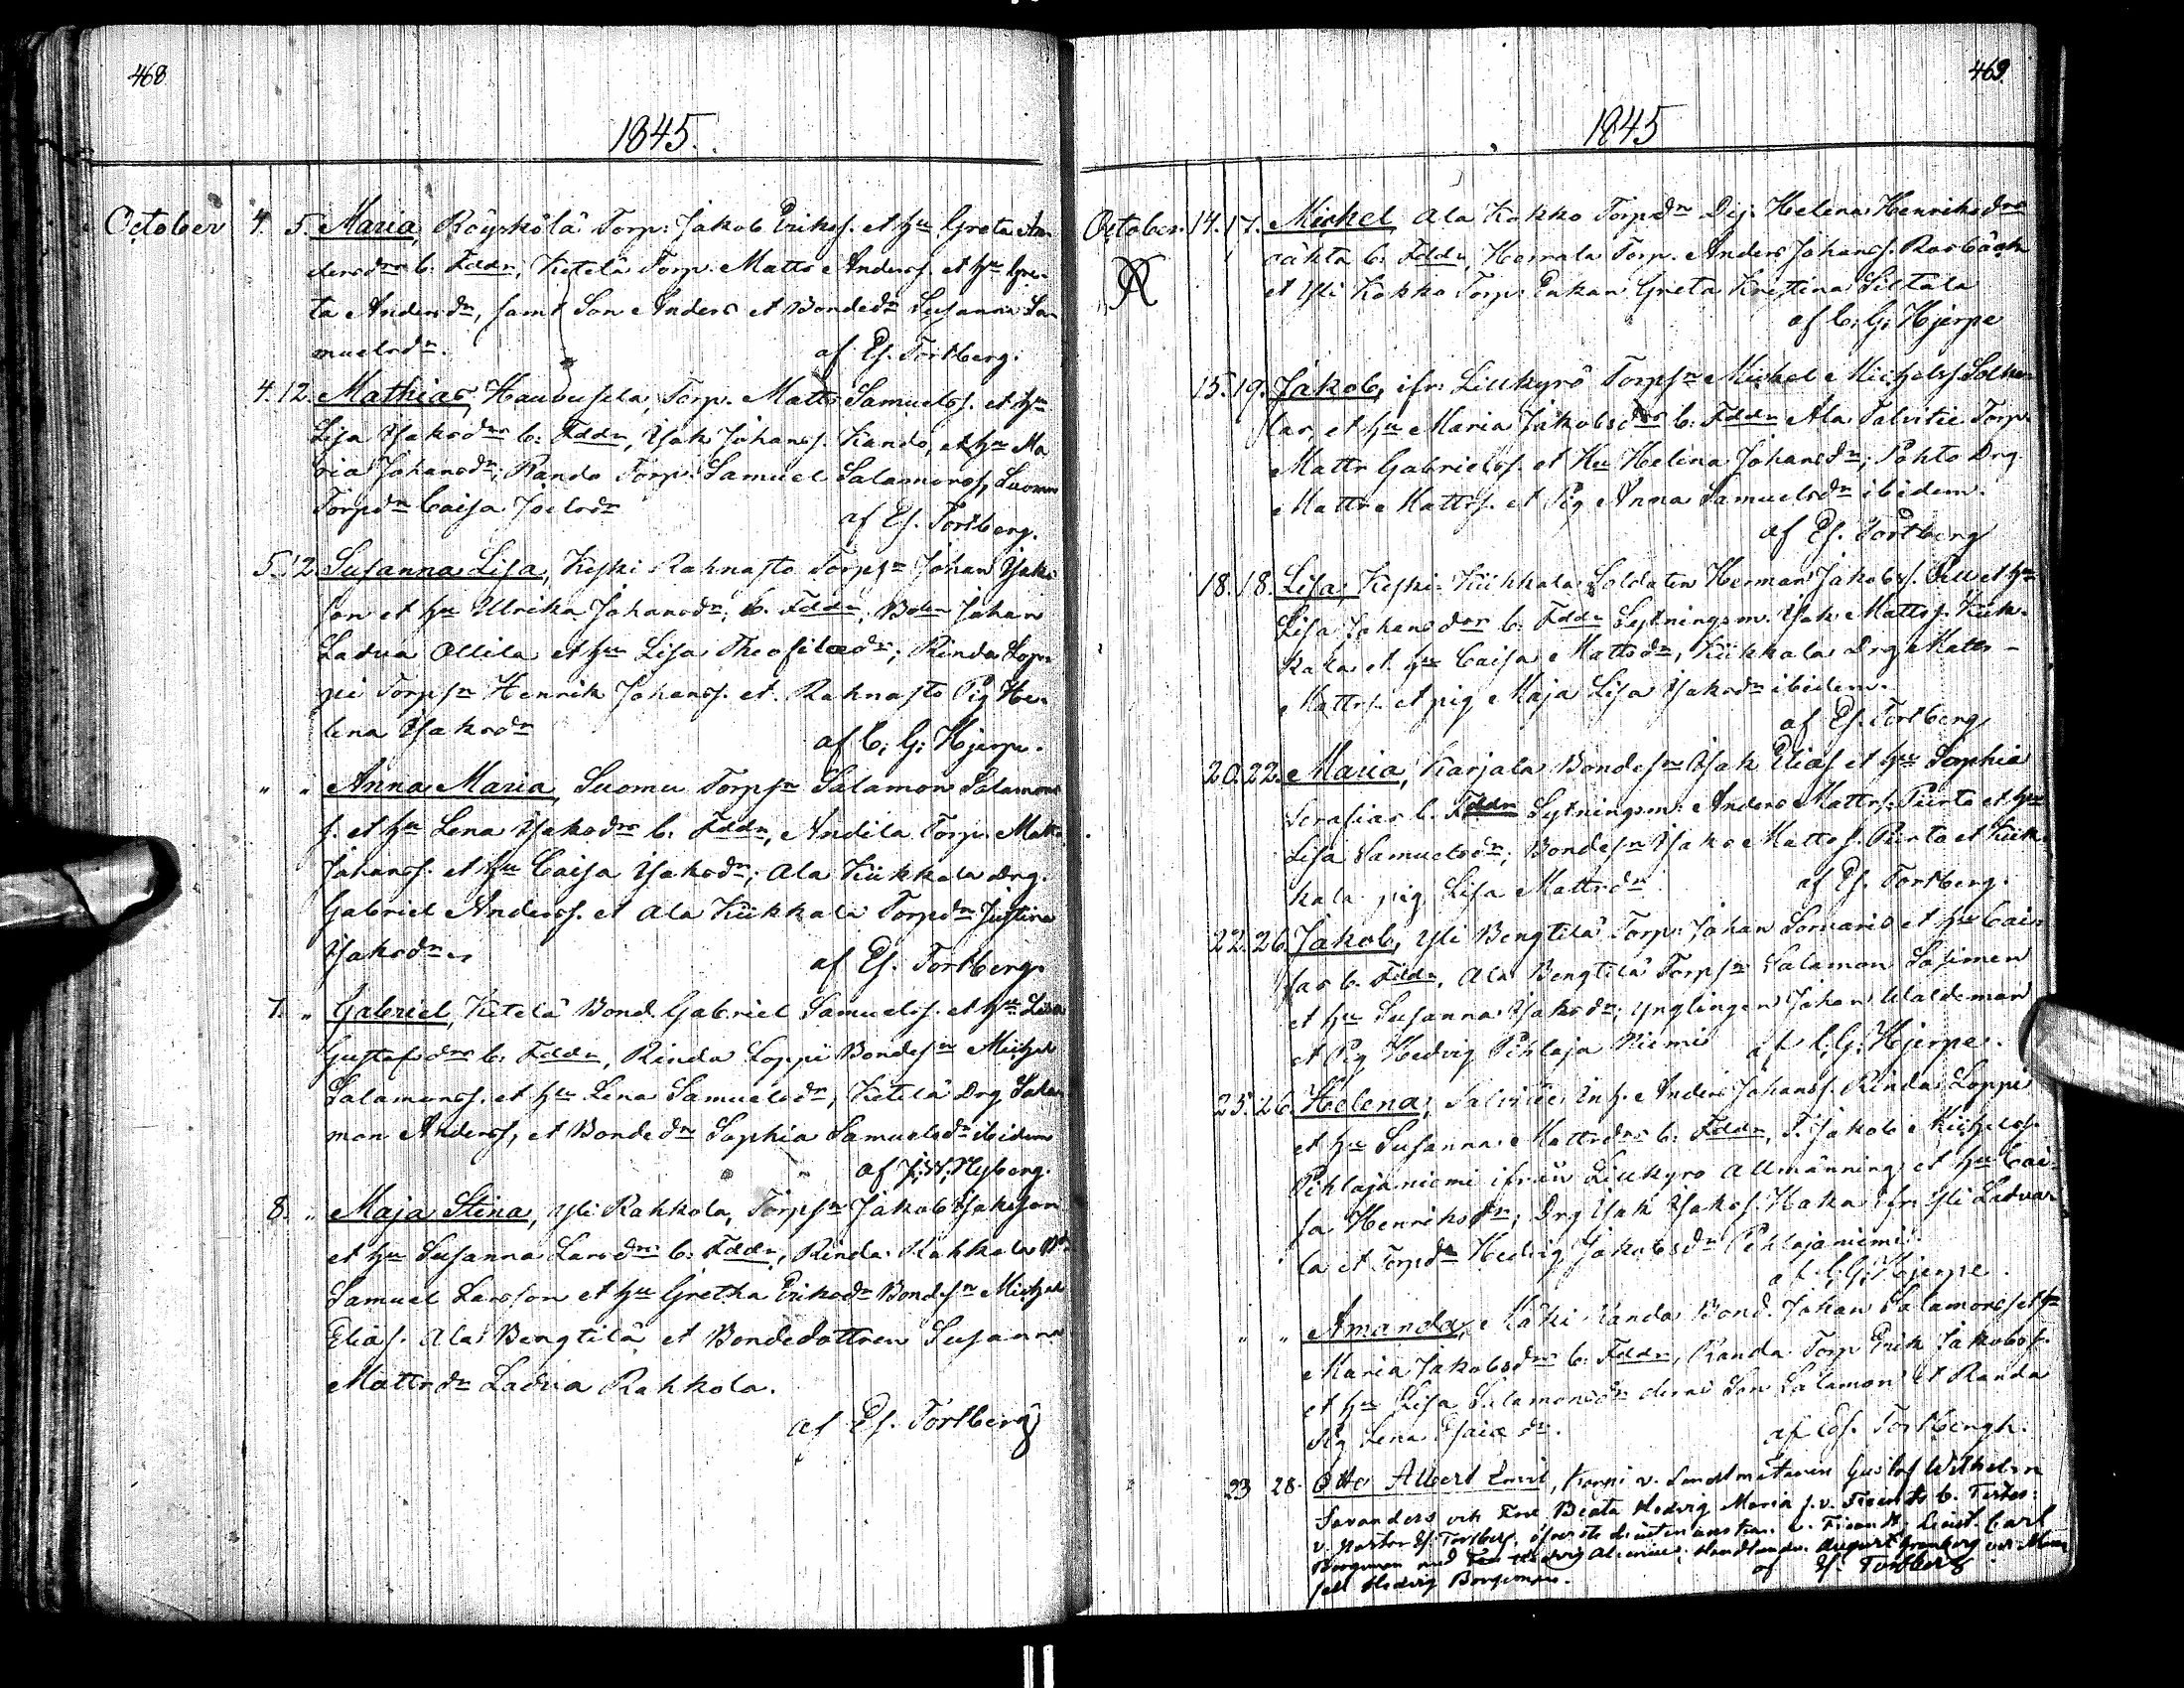 468
1845.
October 4. 5. Maria, Röyskölä Torp. Jakob Eriks. et hu Greta An-
dersdr b. Fddr, Ketelä Torp. Matts Anders. et hu Gre-
ta Andersdr, samt Son Anders et Bondedr Susanna Sa-
muelsdr. af Es. Torlberg.
4. 12. Mathias, Torp. Matts Samuels. et hu
Lisa Isaksdr b. Fddr, Isak Johans. Rando, et hu Ma
ria Johansdr; Rando Torp. Samuel Salamons, Suomu
Torpdr Caisa Joelsdr af Es. Torlberg.
5. 12. Susanna Lisa, Keski Rahnasto Torpsn Johan Isaks
son et hu Ulrika Johansdr, b. Fddr, Bdn Johan
Ladva Ollila et hu Lisa dr; Rinda Lop-
pi Torpsn Henrik Johans. et Rahnasto Pig He-
lena Isaksdr af C. G. Hjerpe.
" " Anna Maria, Suomu Torpsn Salamon Salamons
s. et hu Lena Isaksdr b. Fddr, Andila Torp. Matts
Johans. et hu Caisa Isaksdr; Ala Kükkala Drg.
Gabriel Anders. et Ala Kükkala Torpdr Justina
Isaksdr. af Es. Torlberg.
7. " Gabriel, Ketelä Bond. Gabriel Samuels. et hu Lisa
Gustafsdr b. Fddr, Rinda Loppi Bondesn Michel
Salamons. et hu Lena Samuelsdr, Ketelä Drg Sala-
mon Anders, et Bondedr Sophia Samuelsdr ibidem
af J. W. Nyberg.
8. " Maja Stina, Yli Rahkola, Torpsn Jakob Isaksson
et hu Susanna Larsdr b. Fddr, Rinda Rahkola Bd.
Samuel Larsson et hu Gretha Eriksdr Bondesn Michel
Elias. Ala Bengtilä et Bondedottren Susanna
Mattsdr Ladva Rahkola.
af Es. Torlberg
469.
1845
October. 14. 17. Michel, Ala Kokko Torpdr Dej. Helena Henriksdr
oäkta b. Fddr, Horrala Torp. Anders Johans. Rosbäck
et Yli Kokko Torp. Enkan Greta Kristina Siltala
af C. G. Hjerpe
15. 19. Jakob, ifr. Lillkyrö Torpsn Michel Michels
et hu Maria Jakobsdr b. Fddr Ala Talvitie Torp.
Matts Gabriels. et Hu Helena Johansdr; Pohto Drg
Matts Matts. et Pig Anna Samuelsdr ibidem.
af Es. Torlberg
18. 18. Lisa, Keski Kükkala Soldaten Herman Jakobs. et hu
Lisa Johansdr b. Fddr Sytningsm. Isak Matts. Kük-
kala et hu Caisa Mattsdr, Kükkala Drg Matts
Matts. et pig Maja Lisa Isaksdr ibidem.
af Es. Torlberg
20. 22. Maria, Karjala Bondesn Isak Elias et hu Sophia
Serafias b. Fddr Sytningsm. Anders Matts. Purto et hu
Lisa Samuelsdr; Bondesn Isak Matts. Purto et Kük-
kala pig Lisa Mattsdr af Es. Torlberg.
22. 26. Jakob, Yli Bengtilä Torp. Johan et hu Cai-
sas b. Fddr, Ala Bengtilä Torpsn Salamon
et hu Susanna Isaksdr; ynglingen Johan Waldemar
et Pig Hedvig Pihlaja Niemi af C. G. Hjerpe.
25. 26. Helena, Inh. Anders Johans. Rinda Loppi
et hu Susanna Mattsdr b. Fddr, T. Jakob Michels.
Pihlajaniemi ifrån Lillkyro Allmänning et hu Cai-
sa Henriksdr; Drg Isak Isaks. Haka ifr. Yli Ladva-
la et Torpdr Hedvig Jakobsdr Pihlajaniemi.
af C. G. Hjerpe.
" " Amanda, Mäki Randa Bond. Johan Salamons et hu
Maria Jakobsdr b. Fddr, Randa Torp Erik Jakobs.
et hu Lisa Salamonsdr deras Son Salamon et Randa
Pig Lena Esaiædr. af Es. Torlbergh.
23 28. Otto Albert Emil, v. Landtmätaren Gustaf Wilhelm
Savanders och Fru Beata Hedvig Maria f. v. b.
v. Pastor Es. Torlberg, Carl
Borgman med Fru Hedvig Handlanden August och Mam-
sell Hedvig Borgman. af Es. Torlberg